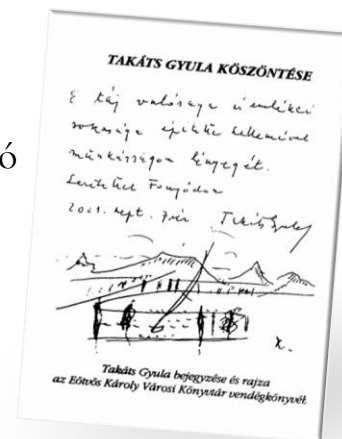 TAKÁTS GYULA KÖSZÖNTÉSE
E táj valósága és emlékei
sokasága építette
munkásságom lényegét.
Szeretettel Fonyódon
2001. sept. 7-én Takáts Gyula
ó
Takáts Gyula bejegyzése és rajza
az Eötvös Károly Városi Könyvtár vendégkönyvében